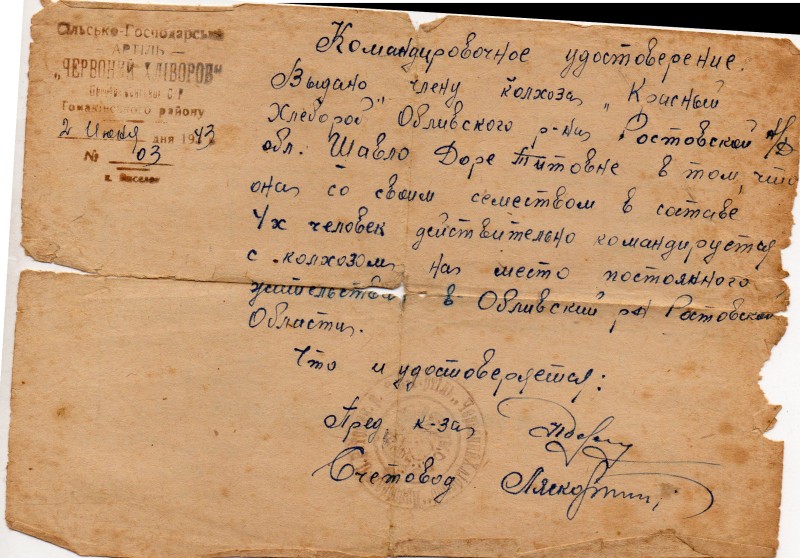 Сільсько-Господарська
АРТІЛЬ —
„ЧЕРВОНИЙ ХЛІБОРОБ“
Томаківського району
2 Июня дня 1943
№ 03
Командировочное удостоверение.
Выдано члену колхоза „Красный
Хлебороб" Обливского р-на Ростовской н/Д
обл. Шавло Доре Титовне в том, что
она со своим семеством в составе
4х человек действительно командируется
с колхозом на место постоянного
жительства в Обливский р-н Ростовской
Области.
Что и удостоверяется:
Пред. к-за
Счетовод